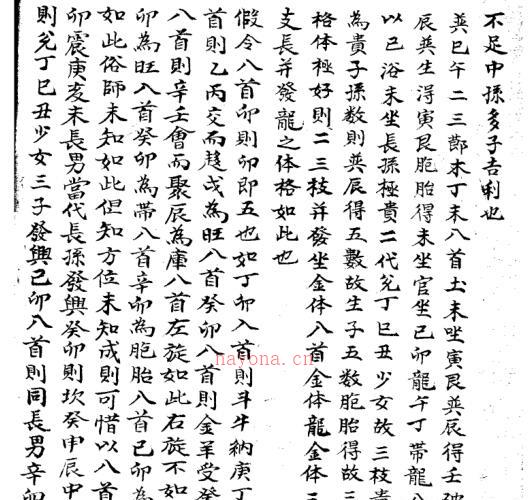 不足中孫多子吉利也
巽巳午二三節木丁未八首土未坐寅艮巽辰得壬
辰巽生浔寅艮胞胎得未坐官坐己卯龍午丁帶龍八
以己浴未坐長孫極貴二代兊丁巳丑少女故三枝貴
為貴子孫数則巽辰得五數故生子五数胞胎得故三
格体極好則二三枝并發坐金体八首金体龍金体三
支長并發龍之体格如此也
假令八首卯則卯即五也如丁卯入首則斗牛納庚丁
首則乙丙交而趍戌為旺八首癸卯八首則金羊受癸
八首則辛壬會而聚辰為庫八首左旋如此右旋不如
卯為旺入首癸卯為帶八首辛卯為胞胎八首己卯為
如此俗師未知如此但知方位未知成則可惜以八首
卯震庚亥未長男當代長孫發興癸卯則坎癸申辰中
則兊丁巳丑少女三子發興己卯八首則同長男辛卯
nayona.cn